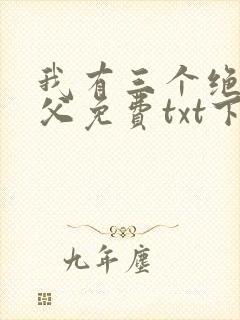 我有三个绝
父免费txt下
九年尘